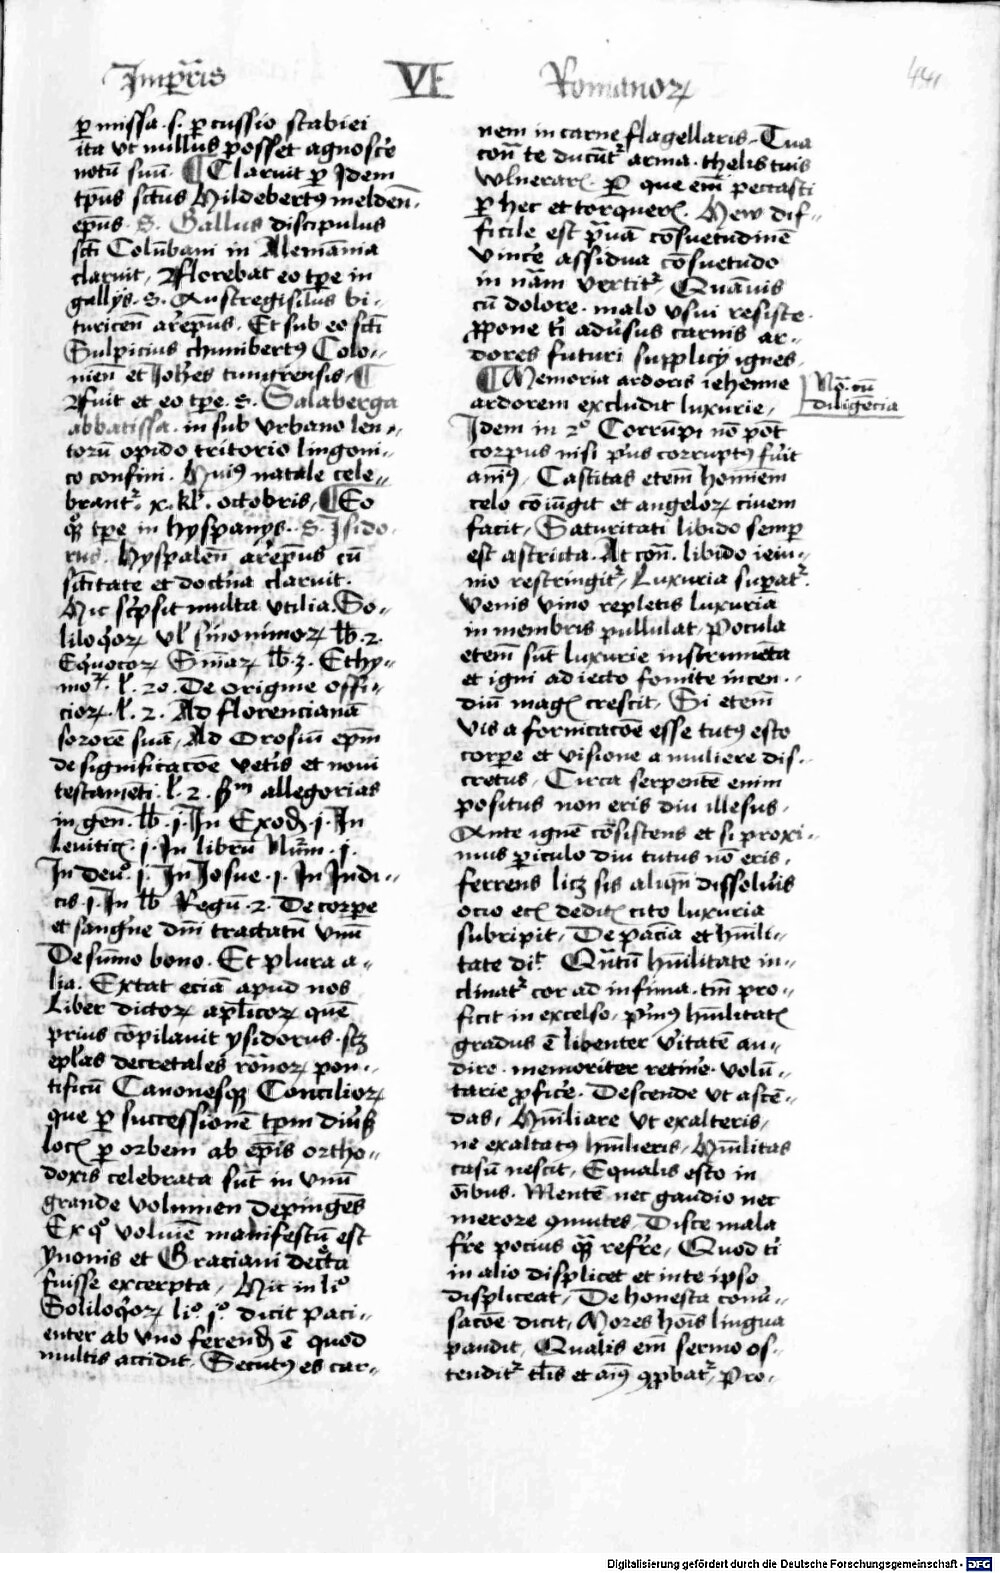 Imꝑr̄is VI Romanoꝝ
441
ꝑmissa .s. ꝑcussio scabiei
ita vt nullus posset agnosc̄e
notū suū. ¶ Claruit ꝑ Idem
tp̄us sct̄us Hildebertꝰ melden̄.
ep̄us. S. Gallus discipulus
scti Colūbani in Alemānia
claruit, Florebat eo tp̄e in
gallijs. S. Austregisilus bi-
turicen̄ arep̄us. Et sub eo scti
Sulpicius chunibertꝰ Colo-
nien̄ et Ioh̄es tungrensis, ¶
Fuit et eo tp̄e. S. Salaberga
abbatissa. in sub vrbano len-
torū opido tritorio lingoni-
co confini. Huiꝰ natale cele-
brantr̄. x. kl̄. octobris, ¶ Eo
qͦꝫ tp̄e in hyspanijs. S. Isido-
rus. hyspalen̄ arep̄us cū
sc̄titate et doctͥna claruit.
Hic sc̄psit multa vtilia. So-
liloqͦoꝝ vl̄ sinonimoꝝ lb̄. 2.
Equocoꝝ Sn̄iaꝝ lb̄. 3. Ethy-
moꝝ. l̄. 20. De origine offi-
cioꝝ. l̄. 2. Ad florencianā
sororē suā, Ad Orosiū ep̄m
de significacōe vet̄is et noui
testamēti. l̄. 2. sm̄ allegorias
in gen̄. lb̄. j. In Exod̄. j. In
leuitic̄. j. In librū Nūm̄. j.
In deuͦ. j. In Iosue. j. In Iudi-
cū. j. In lb̄ Regū. 2. De corpe
et sangͥne dn̄i tractatū vnū
De sūmo bono. Et plura a-
lia. Extat eciā apud nos
Liber dictoꝝ apl̄icoꝝ quē
prius cōpilauit ysidorus. scꝫ
epl̄as decretales rōnoꝝ pon-
tificū Canonesqꝫ Concilioꝝ
que ꝑ successionē tpm diūsꝭ
locꝭ ꝑ orbem ab ep̄is ortho-
doxis celebrata sūt in vnū
grande volumen depingēs
Ex qͦ volūīe manifestū est
yuonis et Graciani dec̄ta
fuisse excerpta, Hic in liͦ
Soliloqͦoꝝ liͦ. jͦ. dicit paci-
enter ab vno ferend̄ ē quod
multis accidit. Secutꝰ es car-
nem in carne flagellaris. Tua
con̄ te ducūtr̄ arma. thelis tuis
wlnerarꝭ. Per que em̄ peccasti
ꝑ hec et torquerꝭ. Hew dif-
ficile est pͣuā cōsuetudinē
vinc̄e assidua cōsuetudo
in nām vertitr̄, Quāuis
cū dolore. malo vsui resiste.
ꝓpone ti adūsus carnis ar-
dores futuri supplicij ignes.
¶ Memoria ardoris iehenne
ardorem excludit luxurie,
Nō. cū
diligēcia
Idem in 2ͦ Corrūpi nō pōt
corpus nisi pͥus corruptꝰ fūit
aīmꝰ, Castitas etem̄ homīem
celo cōiūgit et angeloꝝ ciuem
facit, Saturitati libido semꝑ
est astricta. At con̄. libido ieiu-
nio restringitr̄, Luxuria supatr̄.
Venis vino repletis luxuria
in membris pullulat, Pocula
etem̄ sūt luxurie instrumēta
et igni adiecto fomite incen-
diū magꝭ crescit, Si etem̄
vis a fornicacōe esse tutꝰ esto
corpe et visione a muliere dis-
cretus, Circa serpentē enim
positus non eris diu illesus,
Ante ignē cōsistens et si proxi-
mus ꝑiculo diu tutus nō eris,
ferrens licꝫ sis aliqn̄ dissoluͥis
ocio ecꝭ deditꝭ cito luxuria
subripit, De paciā et hūili-
tate diͭ. Qn̄tū hūilitate in-
clinatr̄ cor ad infima. tm̄ pro-
ficit in excelso, pͥmꝰ hūilitatꝭ
gradus ē libenter vͥitatē au-
dire. memoriter retin̄e. volū-
tarie ꝓfic̄e. Descende vt ascē-
das, Hūiliare vt exalteris,
ne exaltatꝰ hūilieris, Hūilitas
casū nescit, Equalis esto in
oībus. Mentē nec gaudio nec
merore ꝯmutes, Disce mala
fr̄re pocius qͣꝫ refr̄re, Quod ti
in alio displicet et in te ipso
displiceat, De honesta conū-
sacōe dicit, Mores hoīs lingua
pandit, Qualis em̄ sermo os-
tenditr̄ tl̄is et aīꝰ ꝯꝓbatr̄, Pro-
Digitalisierung gefördert durch die Deutsche Forschungsgemeinschaft - DFG